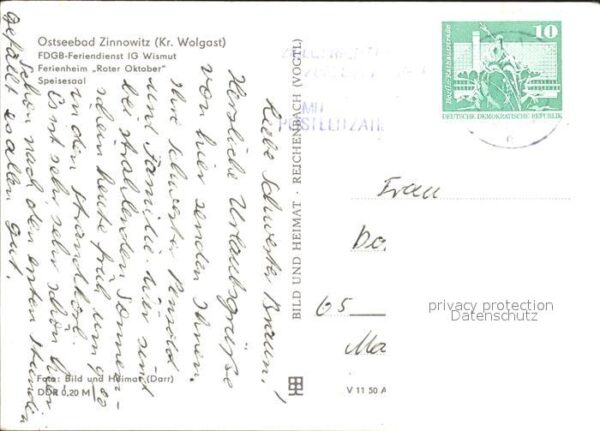 Ostseebad Zinnowitz (Kr. Wolgast)
FDGB-Feriendienst IG Wismut
Ferienheim „Roter Oktober"
Speisesaal
Liebe Schwester Braun!
Herzliche Urlaubsgrüße
von hier senden Ihnen
Ihre Schwester
und Familie. Wir sind
bei strahlenden Sonnen-
schein heute früh um 9
in den Strandkorb.
Es ist sehr sehr schön hier
schon nach den ersten Stunden
gefällt es allen gut.
Foto: Bild und Heimat (Darr)
DDR 0,20 M
BILD UND HEIMAT · REICHENBACH (VOGTL)
V 11 50 A
MIT
POSTLEITZAHL
10
DEUTSCHE DEMOKRATISCHE REPUBLIK
Frau
65
Ma
privacy protection
Datenschutz